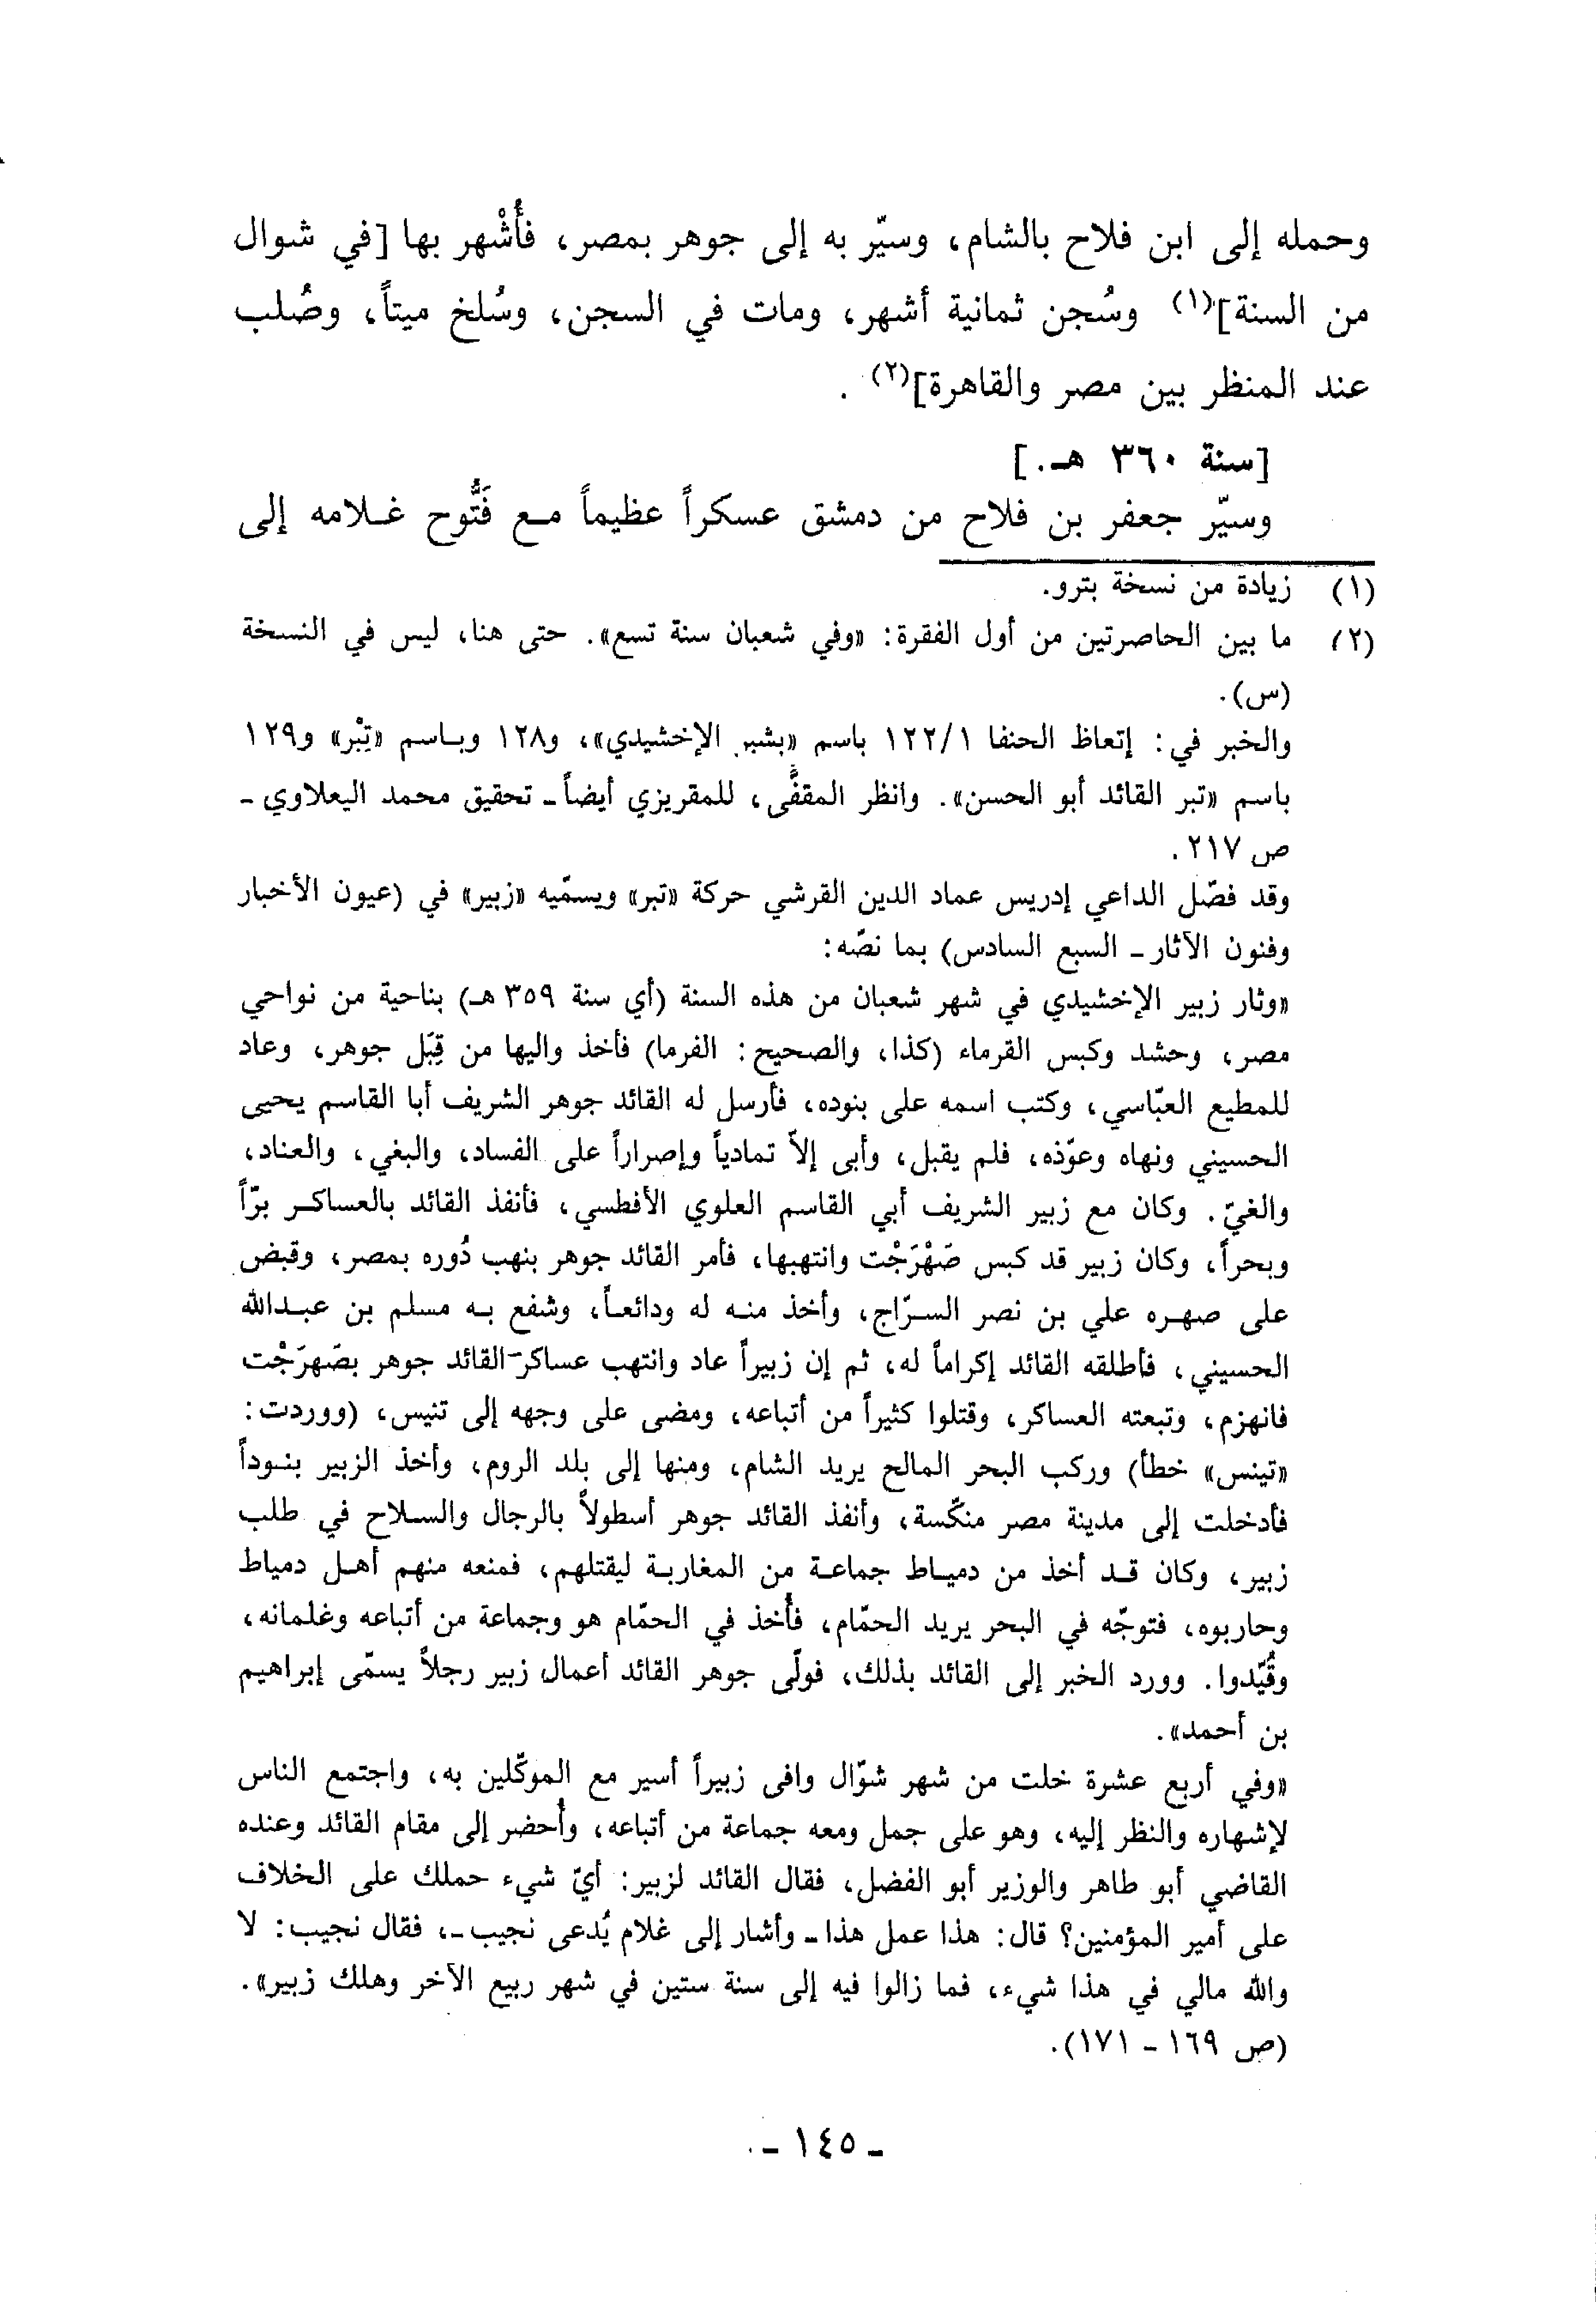 وحمله إلى ابن فلاح بالشام، وسيّر به إلى جوهر بمصر، فأُشْهر بها [في شوال
من السنة](١) وسُجن ثمانية أشهر، ومات في السجن، وسُلخ ميتاً، وصُلب
عند المنظر بين مصر والقاهرة](٢) .
[سنة ٣٦٠ هـ.]
وسيّر جعفر بن فلاح من دمشق عسكراً عظيماً مـع فَتُّوح غـلامه إلى
(١) زيادة من نسخة بترو.
(٢) ما بين الحاصرتين من أول الفقرة: «وفي شعبان سنة تسع». حتى هنا، ليس في النسخة
(س).
والخبر في: إتعاظ الحنفا ١٢٢/١ باسم «بشير الإخشيدي»، و١٢٨ وبـاسم «تِبْر» و١٢٩
باسم «تبر القائد أبو الحسن». وانظر المقفَّى، للمقريزي أيضاً ـ تحقيق محمد اليعلاوي ـ
ص ٢١٧ .
وقد فصّل الداعي إدريس عماد الدين القرشي حركة «تبر» ويسمّيه «زبير» في (عيون الأخبار
وفنون الآثار ـ السبع السادس) بما نصّه:
«وثار زبير الإخشيدي في شهر شعبان من هذه السنة (أي سنة ٣٥٩ هـ) بناحية من نواحي
مصر، وحشد وكبس القرماء (كذا، والصحيح: الفرما) فأخذ واليها من قِبَل جوهر، وعاد
للمطيع العبّاسي، وكتب اسمه على بنوده، فأرسل له القائد جوهر الشريف أبا القاسم يحيى
الحسيني ونهاه وعوّذه، فلم يقبل، وأبى إلاّ تمادياً وإصراراً على الفساد، والبغي، والعناد،
والغيّ. وكان مع زبير الشريف أبي القاسم العلوي الأفطسي، فأنفذ القائد بالعساكـر برّاً
وبحراً، وكان زبير قد كبس صَهْرَجْت وانتهبها، فأمر القائد جوهر بنهب دُوره بمصر، وقبض
على صهـره علي بن نصر السـرّاج، وأخذ منـه له ودائعـاً، وشفع بـه مسلم بن عبـدالله
الحسيني، فأطلقه القائد إكراماً له، ثم إن زبيراً عاد وانتهب عساكر القائد جوهر بصَهرَجْت
فانهزم، وتبعته العساكر، وقتلوا كثيراً من أتباعه، ومضى على وجهه إلى تنيس، (ووردت:
«تينس» خطأ) وركب البحر المالح يريد الشام، ومنها إلى بلد الروم، وأخذ الزبير بنـوداً
فأدخلت إلى مدينة مصر منكّسة، وأنفذ القائد جوهر أسطولاً بالرجال والسلاح في طلب
زبير، وكان قـد أخذ من دميـاط جماعـة من المغاربـة ليقتلهم، فمنعه منهم أهـل دمياط
وحاربوه، فتوجّه في البحر يريد الحمّام، فأُخذ في الحمّام هو وجماعة من أتباعه وغلمانه،
وقُيّدوا. وورد الخبر إلى القائد بذلك، فولّى جوهر القائد أعمال زبير رجلاً يسمّى إبراهيم
بن أحمد».
«وفي أربع عشرة خلت من شهر شوّال وافى زبيراً أسير مع الموكّلين به، واجتمع الناس
لإشهاره والنظر إليه، وهو على جمل ومعه جماعة من أتباعه، وأُحضر إلى مقام القائد وعنده
القاضي أبو طاهر والوزير أبو الفضل، فقال القائد لزبير: أيّ شيء حملك على الخلاف
على أمير المؤمنين؟ قال: هذا عمل هذا ـ وأشار إلى غلام يُدعى نجيب ـ، فقال نجيب: لا
والله مالي في هذا شيء، فما زالوا فيه إلى سنة ستين في شهر ربيع الآخر وهلك زبير».
(ص ١٦٩ ـ ١٧١).
ـ ١٤٥ ـ